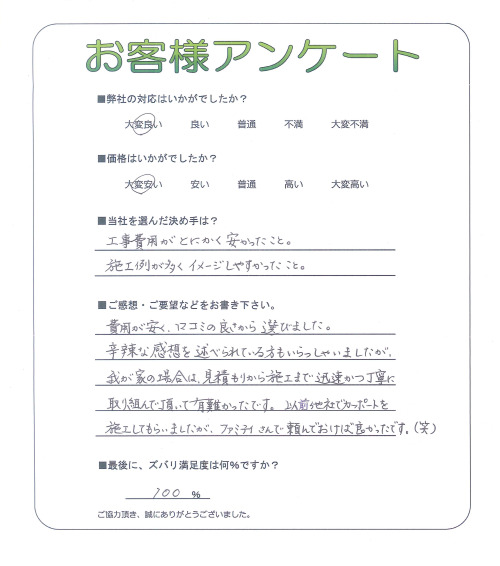 お客様アンケート
■弊社の対応はいかがでしたか？
大変良い 良い 普通 不満 大変不満
■価格はいかがでしたか？
大変安い 安い 普通 高い 大変高い
■当社を選んだ決め手は？
工事費用がとにかく安かったこと。
施工例が多くイメージしやすかったこと。
■ご感想・ご要望などをお書き下さい。
費用が安く、口コミの良さから選びました。
辛辣な感想を述べられている方もいらっしゃいましたが、
我が家の場合は、見積もりから施工まで迅速かつ丁寧に
取り組んで頂いて有難かったです。以前他社でカーポートを
施工してもらいましたが、ファミティさんで頼んでおけば良かったです。(笑)
■最後に、ズバリ満足度は何%ですか？
100 %
ご協力頂き、誠にありがとうございました。